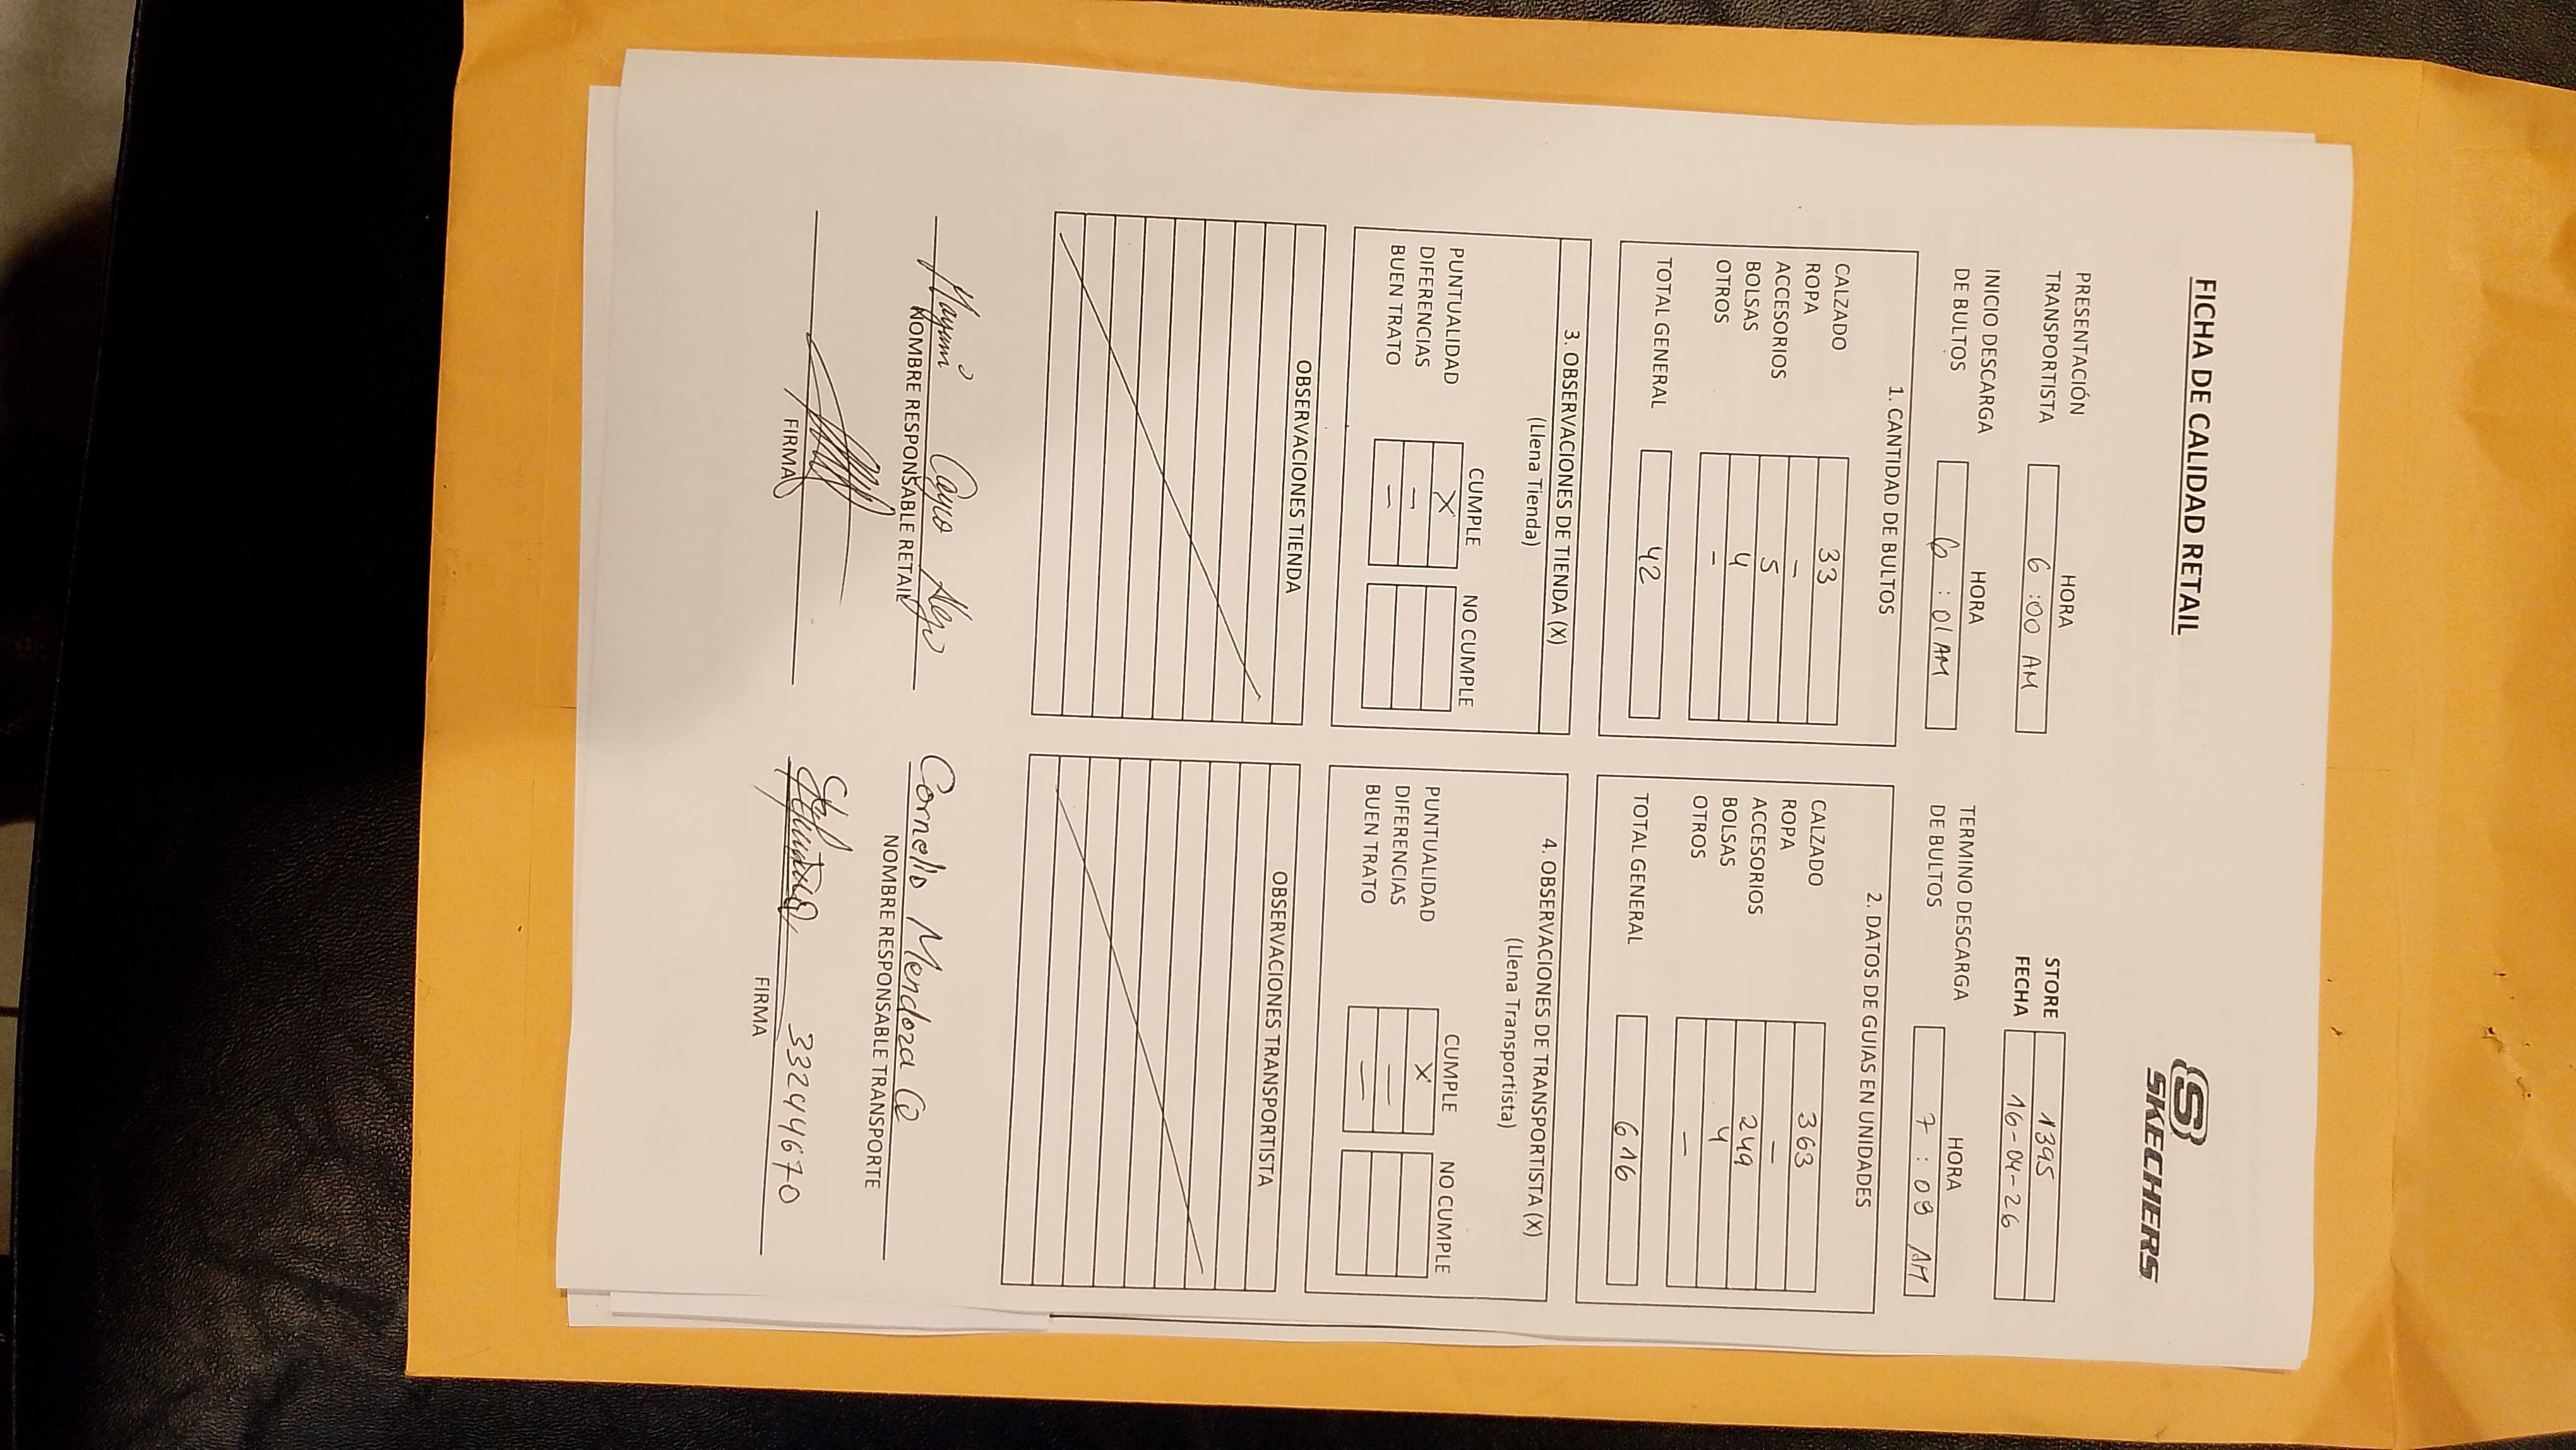 FICHA DE CALIDAD RETAIL
SKECHERS
STORE 1395
FECHA 16-04-26
HORA
PRESENTACIÓN
TRANSPORTISTA 6:00 AM
HORA
INICIO DESCARGA
DE BULTOS 6:01 AM
HORA
TERMINO DESCARGA
DE BULTOS 7:09 AM
1. CANTIDAD DE BULTOS
CALZADO 33
ROPA -
ACCESORIOS 5
BOLSAS 4
OTROS -
TOTAL GENERAL 42
2. DATOS DE GUIAS EN UNIDADES
CALZADO 363
ROPA -
ACCESORIOS 249
BOLSAS 4
OTROS -
TOTAL GENERAL 616
3. OBSERVACIONES DE TIENDA (X)
(Llena Tienda)
CUMPLE NO CUMPLE
PUNTUALIDAD X
DIFERENCIAS -
BUEN TRATO -
4. OBSERVACIONES DE TRANSPORTISTA (X)
(Llena Transportista)
CUMPLE NO CUMPLE
PUNTUALIDAD X
DIFERENCIAS -
BUEN TRATO -
OBSERVACIONES TIENDA
OBSERVACIONES TRANSPORTISTA
NOMBRE RESPONSABLE RETAIL
FIRMA
Cornelio Mendoza
NOMBRE RESPONSABLE TRANSPORTE
33244670
FIRMA